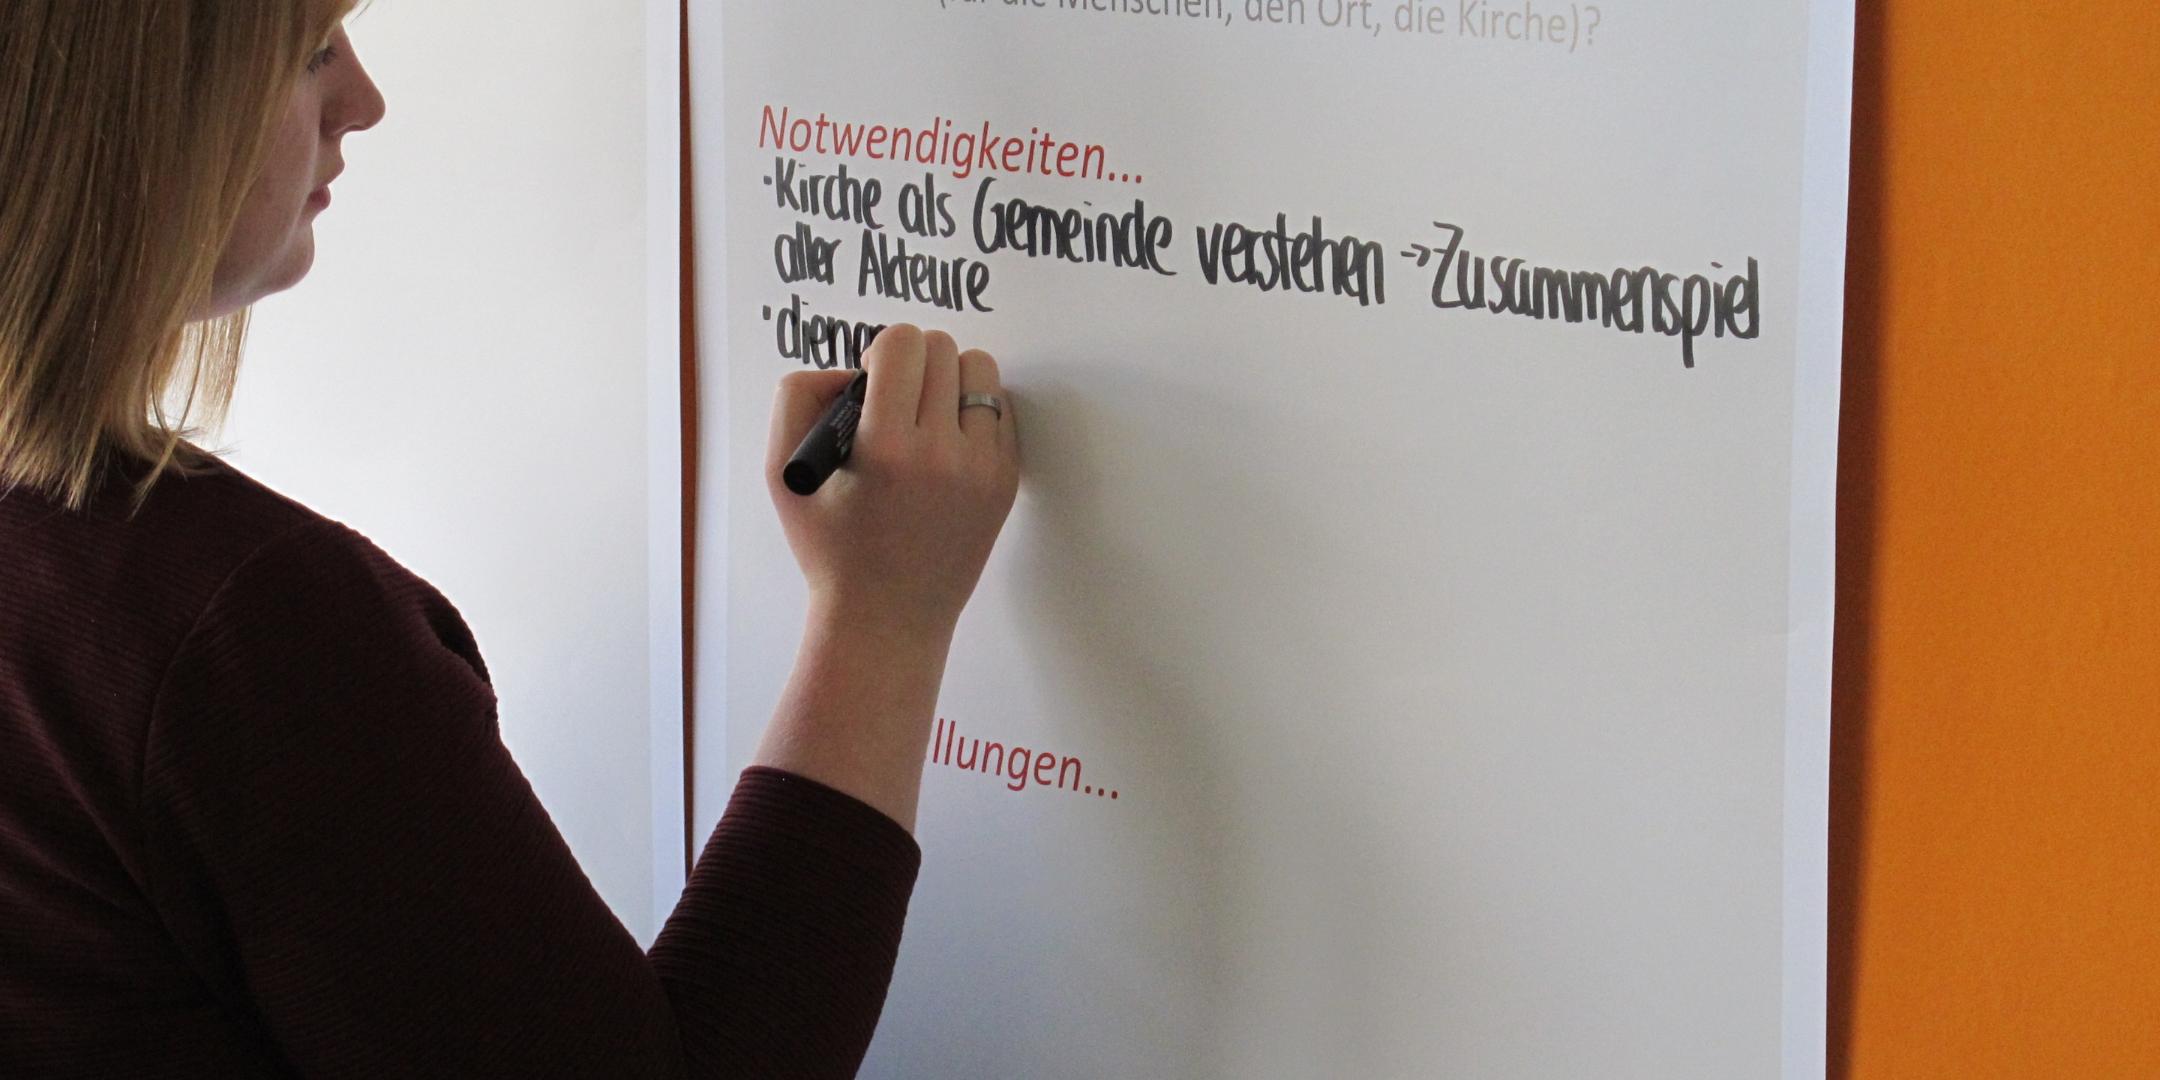 (für die Menschen, den Ort, die Kirche)?
Notwendigkeiten...
·Kirche als Gemeinde verstehen → Zusammenspiel
aller Akteure
·diene
llungen...